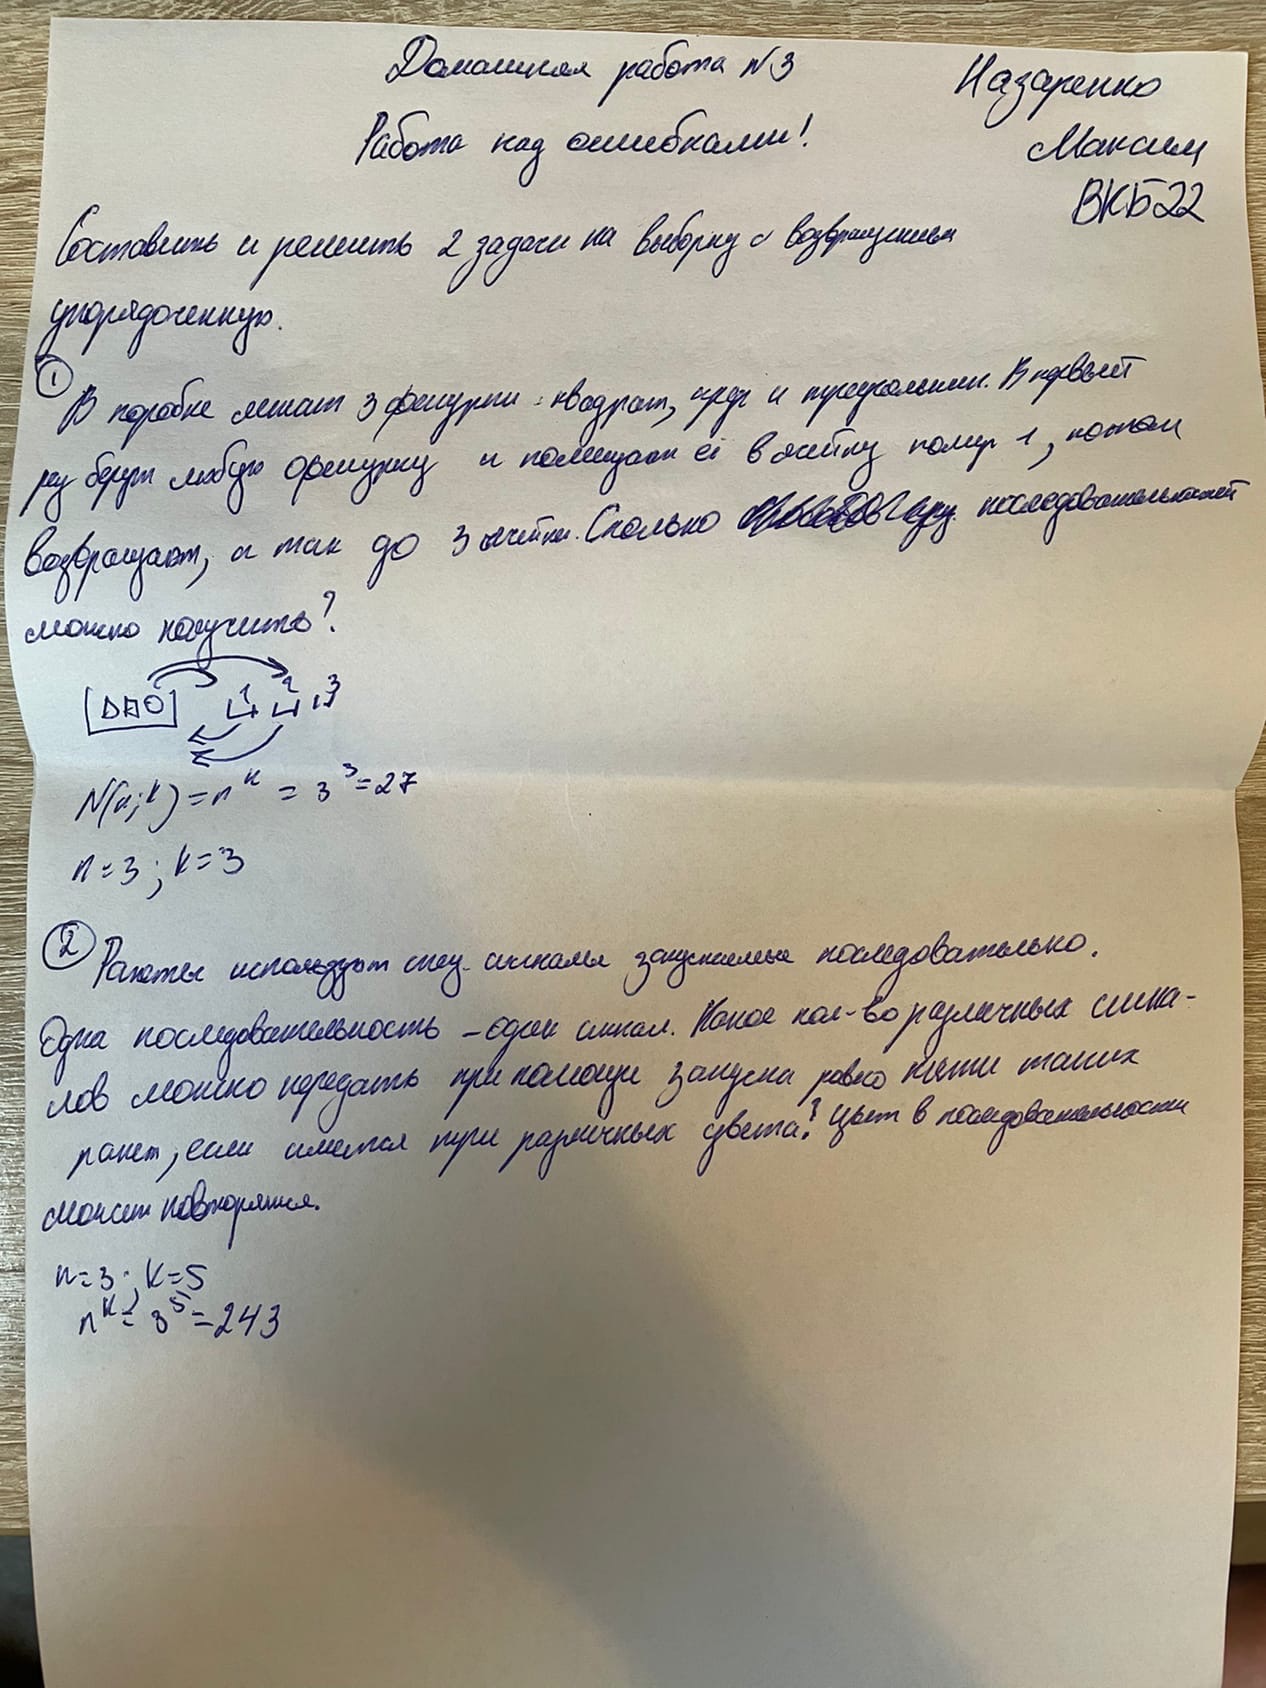 Домашняя работа №3
Назаренко
Работа над ошибками!
Максим
ВКБ22
Составить и решить 2 задачи на выборку с возвращением
упорядоченную.
① В коробке лежат 3 фигурки - квадрат, круг и треугольник. В первый
раз берут любую фигурку и помещают её в ячейку номер 1, потом
возвращают, и так до 3 ячейки. Сколько последовательностей
можно получить?
1 2 3
N(n;k) = n^k = 3^3 = 27
n=3; k=3
② Ракеты используют спец. сигналы запускаемые последовательно.
Одна последовательность - один сигнал. Какое кол-во различных сигна-
лов можно передать при помощи запуска равно пяти таких
ракет, если имеется три различных цвета? Цвет в последовательности
может повторятся.
n=3; k=5
n^k = 3^5 = 243